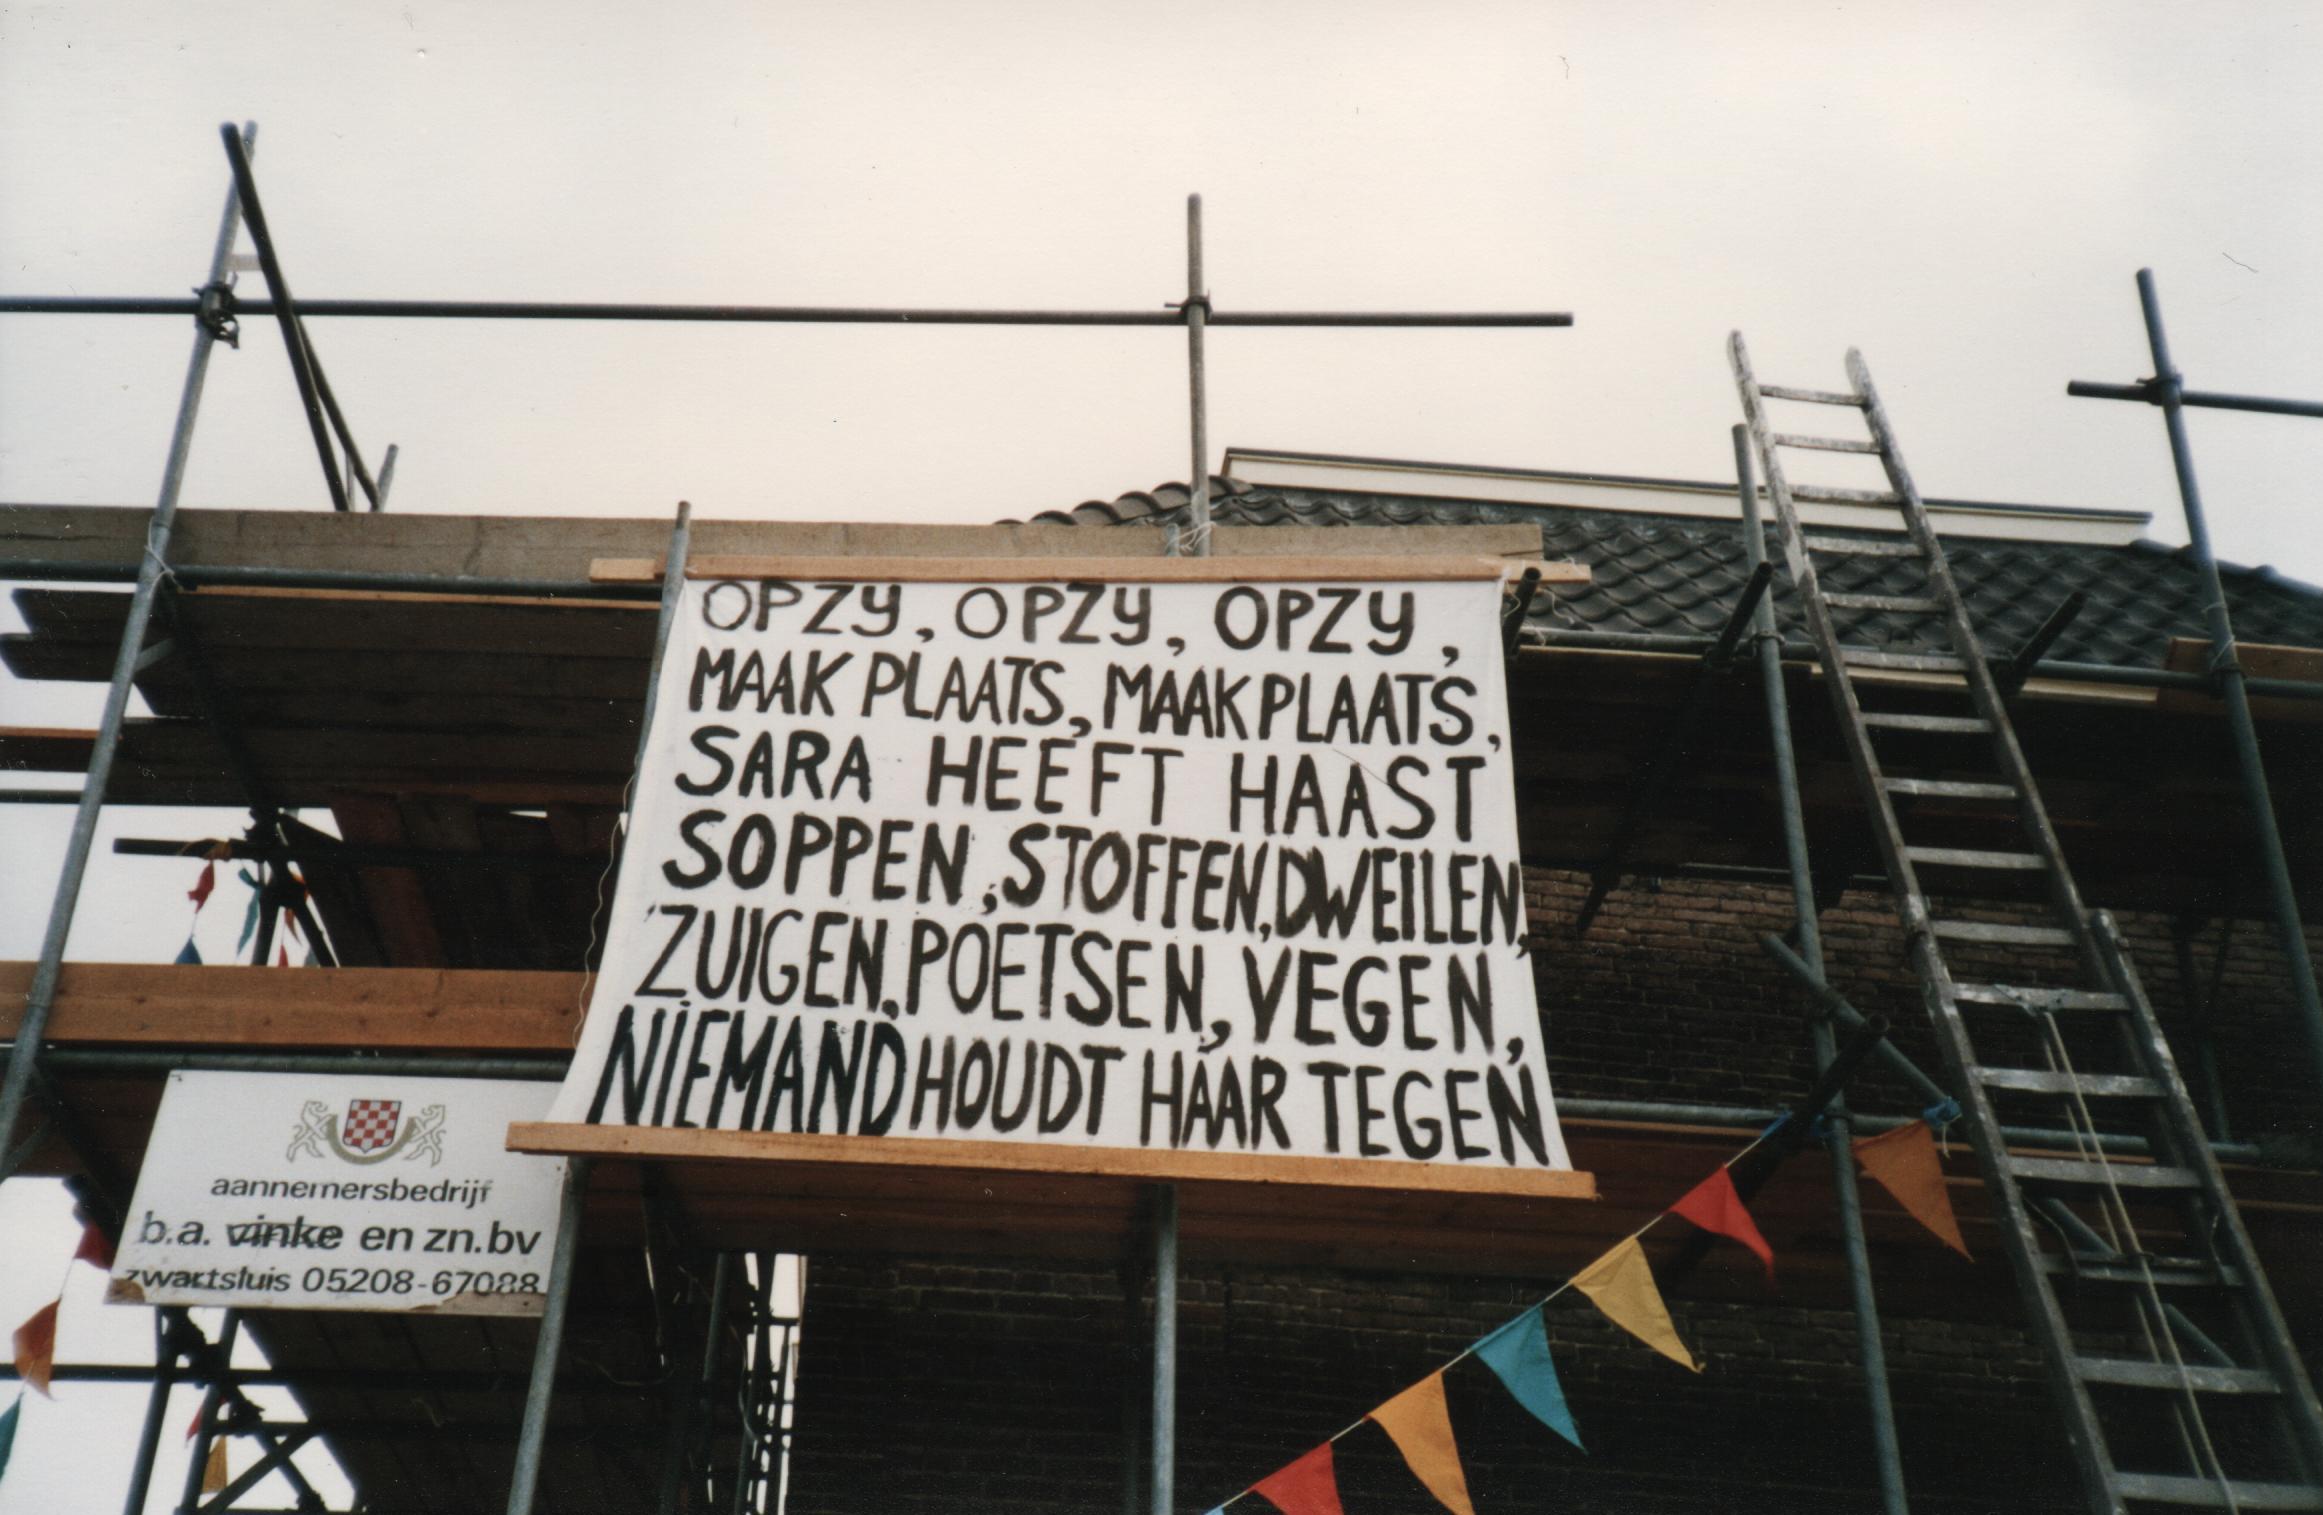 OPZY, OPZY, OPZY,
MAAK PLAATS, MAAK PLAATS,
SARA HEEFT HAAST
SOPPEN, STOFFEN, DWEILEN,
ZUIGEN, POETSEN, VEGEN,
NIEMAND HOUDT HAAR TEGEN
aannemersbedrijf
b.a. vinke en zn.bv
zwartsluis 05208-67088